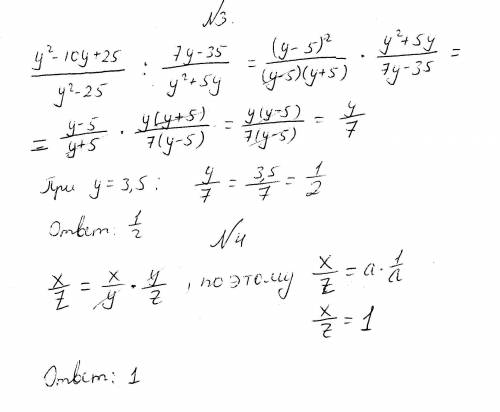 №3.
(y²-10y+25)/(y²-25) : (7y-35)/(y²+5y) = (y-5)²/((y-5)(y+5)) · (y²+5y)/(7y-35) =
= (y-5)/(y+5) · y(y+5)/(7(y-5)) = y(y-5)/(7(y-5)) = y/7
При y=3,5: y/7 = 3,5/7 = 1/2
Ответ: 1/2
№4
x/z = x/y · y/z, поэтому x/z = a · 1/a
x/z = 1
Ответ: 1